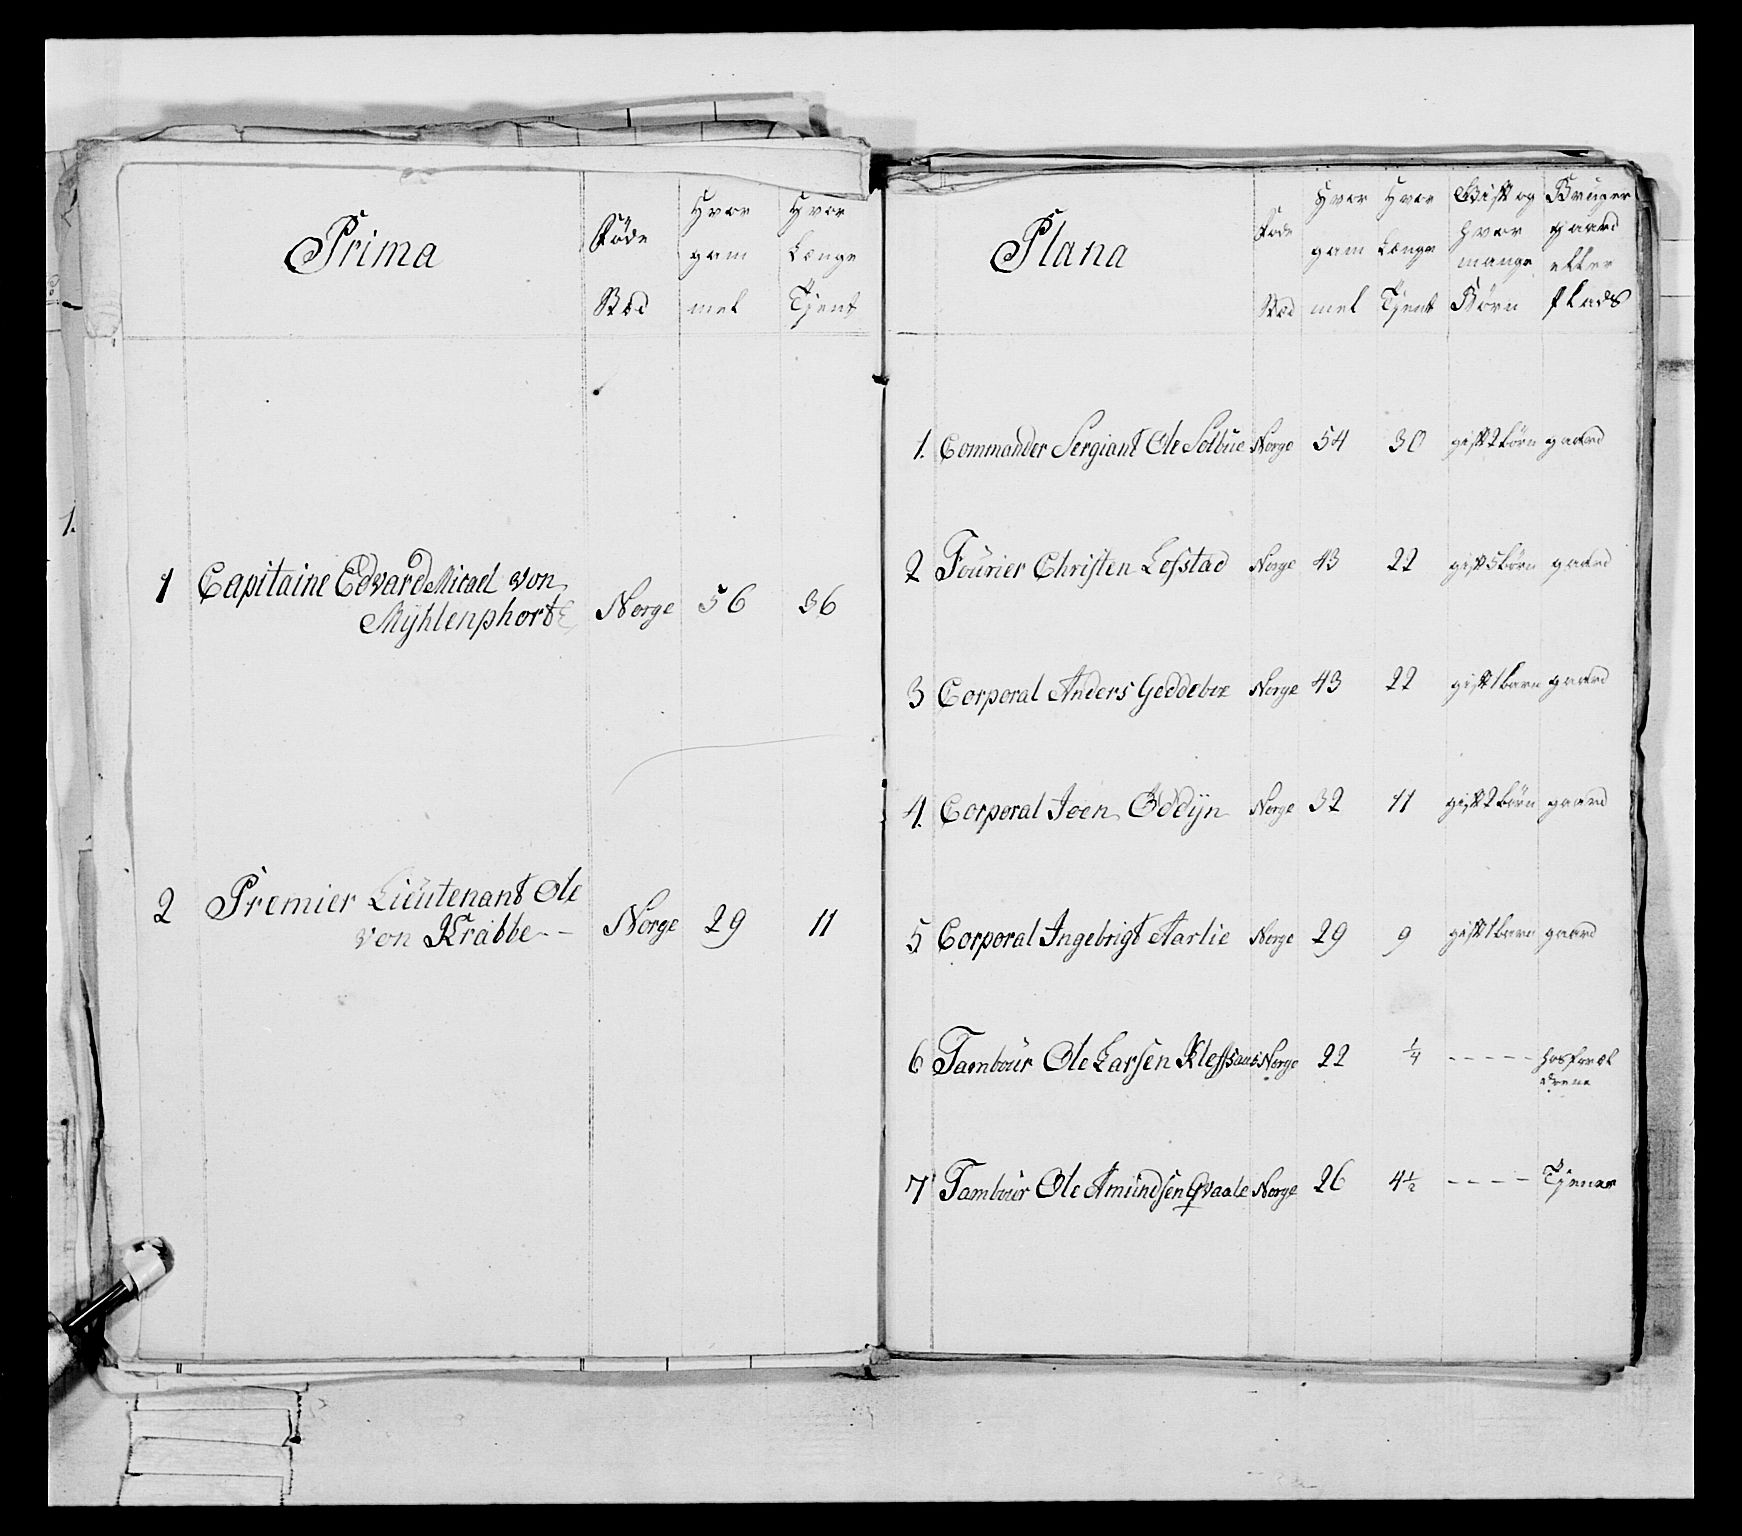 Prima
Føde
Stæd
Hvor
gam
mel
Hvor
Længe
Tjent
1 Capitaine Edvard Micael von
Mÿhlenphort Norge 56 36
2 Premier Lieutenant Ole
von Krabbe Norge 29 11
Plana
Føde
Stæd
Hvor
gam
mel
Hvor
Længe
Tjent
Gift og
hvor
mange
Børn
Bruger
gaard
eller
Plads
1. Commander Sergiant Ole Solbue Norge 54 30 gift 2 børn gaard
2 Fourier Christen Lofstad Norge 43 22 gift 5 børn gaard
3 Corporal Anders Geddeboe Norge 43 22 gift 1 barn gaard
4. Corporal Joen Oddÿn Norge 32 11 gift 2 børn gaard
5 Corporal Ingebrigt Aarlie Norge 29 9 gift 1 barn gaard
6 Tambour Ole Larsen Norge 22 1/4 - - - - - hos foræl
drene
7 Tambour Ole Amundsen Qvaale Norge 26 4 1/2 - - - - Tjener
1.